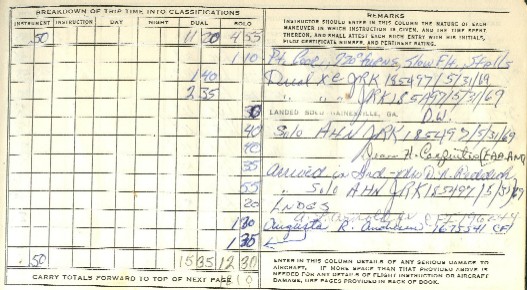 BREAKDOWN OF TRIP TIME INTO CLASSIFICATIONS
REMARKS
INSTRUMENT INSTRUCTION DAY NIGHT DUAL SOLO
INSTRUCTOR SHOULD ENTER IN THIS COLUMN THE NATURE OF EACH
MANEUVER IN WHICH INSTRUCTION IS GIVEN, AND THE TIME SPENT
THEREON, AND SHALL ATTEST EACH SUCH ENTRY WITH HIS INITIALS,
PILOT CERTIFICATE NUMBER, AND PERTINENT RATING.
.50 11 20 4 55
1 10 720° turns, Slow Flt, Stalls
1 40 Dual XC JRK 185497/5/31/69
2 35 " " JRK 185497/5/31/69
LANDED SOLO GAINESVILLE, GA. D.W.
40 Solo AHN JRK 185497/5/31/69
40
35 Arrived
55 " Solo AHN JRK 185497/5/31/69
20
1 30 Augusta R. Anderson 1675541 CFI
1 35
.50 15 35 12 30
CARRY TOTALS FORWARD TO TOP OF NEXT PAGE
ENTER IN THIS COLUMN DETAILS OF ANY SERIOUS DAMAGE TO
AIRCRAFT. IF MORE SPACE THAN THAT PROVIDED ABOVE IS
NEEDED FOR ANY DETAILS OF FLIGHT INSTRUCTION OR AIRCRAFT
DAMAGE, USE PAGES PROVIDED IN BACK OF BOOK.